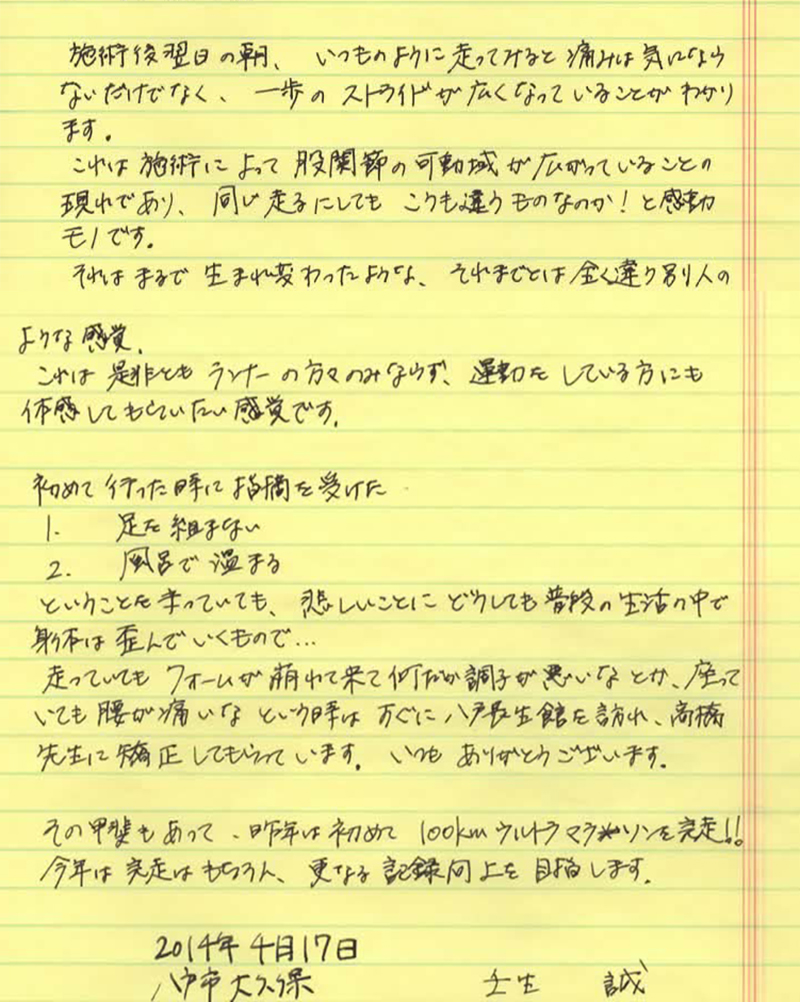 施術後翌日の朝、いつものように走ってみると痛みは気になら
ないだけでなく、一歩のストライドが広くなっていることがわかり
ます。
これは施術によって股関節の可動域が広がっていることの
現れであり、同じ走るにしてもこうも違うものなのか！と感動
モノです。
それはまるで生まれ変わったような、それまでとは全く違う別人の
ような感覚。
これは是非ともランナーの方々のみならず、運動をしている方にも
体感してもらいたい感覚です。
初めて行った時に指摘を受けた
1. 足を組まない
2. 風呂で温まる
ということを守っていても、悲しいことにどうしても普段の生活の中で
身体は歪んでいくもので…
走っていてもフォームが崩れて来て何だか調子が悪いなとか、座って
いても腰が痛いなという時はすぐに八戸長生館を訪れ、高橋
先生に矯正してもらっています。いつもありがとうございます。
その甲斐もあって、昨年は初めて100kmウルトラマラソンを完走!!
今年は完走はもちろん、更なる記録向上を目指します。
2014年4月17日
八戸市大久保 壬生 誠